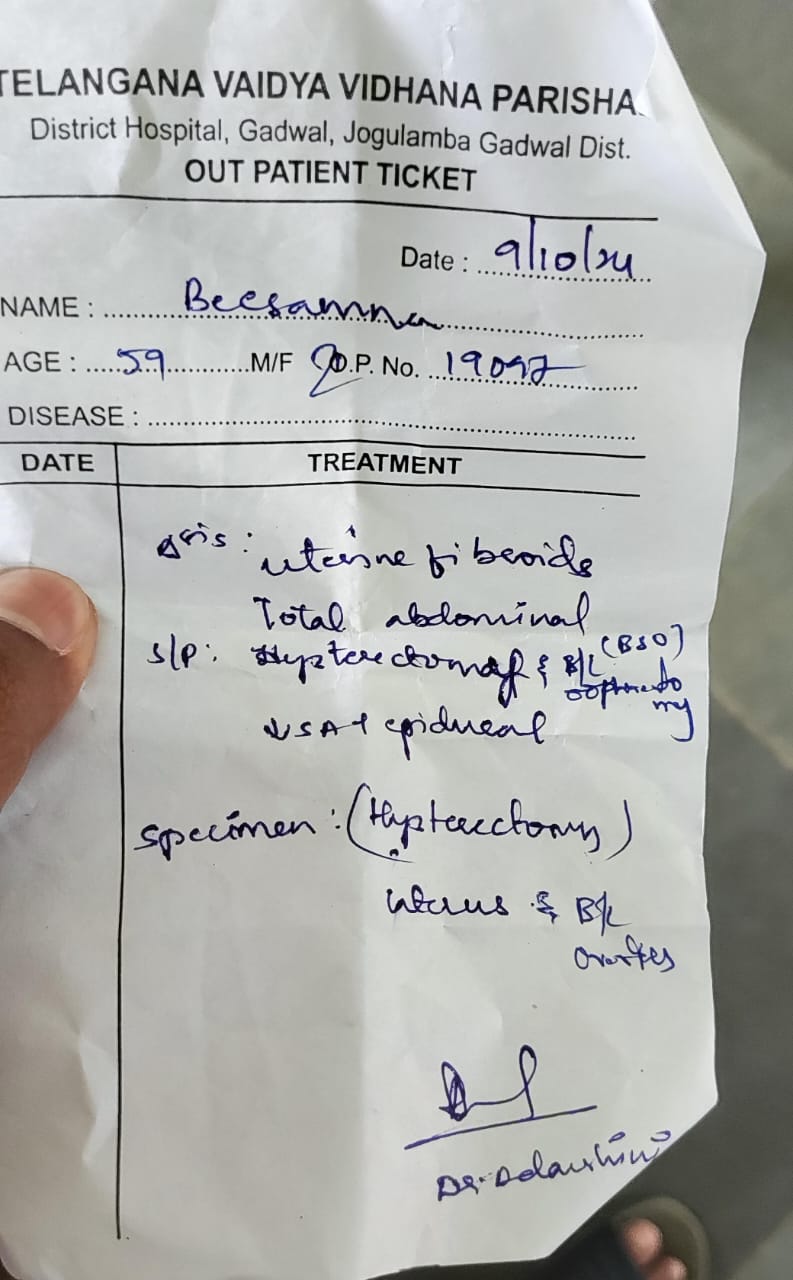 TELANGANA VAIDYA VIDHANA PARISHA
District Hospital, Gadwal, Jogulamba Gadwal Dist.
OUT PATIENT TICKET
Date : 9/10/24
NAME : Beesamma
AGE : 59 M/F O.P. No. 19097
DISEASE :
DATE TREATMENT
uterine fibroids
Total abdominal
S/P: Hypterectomy & B/L (BSO)
oophorecto
my
SA + epidural
Specimen : (Hypterectomy)
uterus & B/L
Ovaries
Dr.